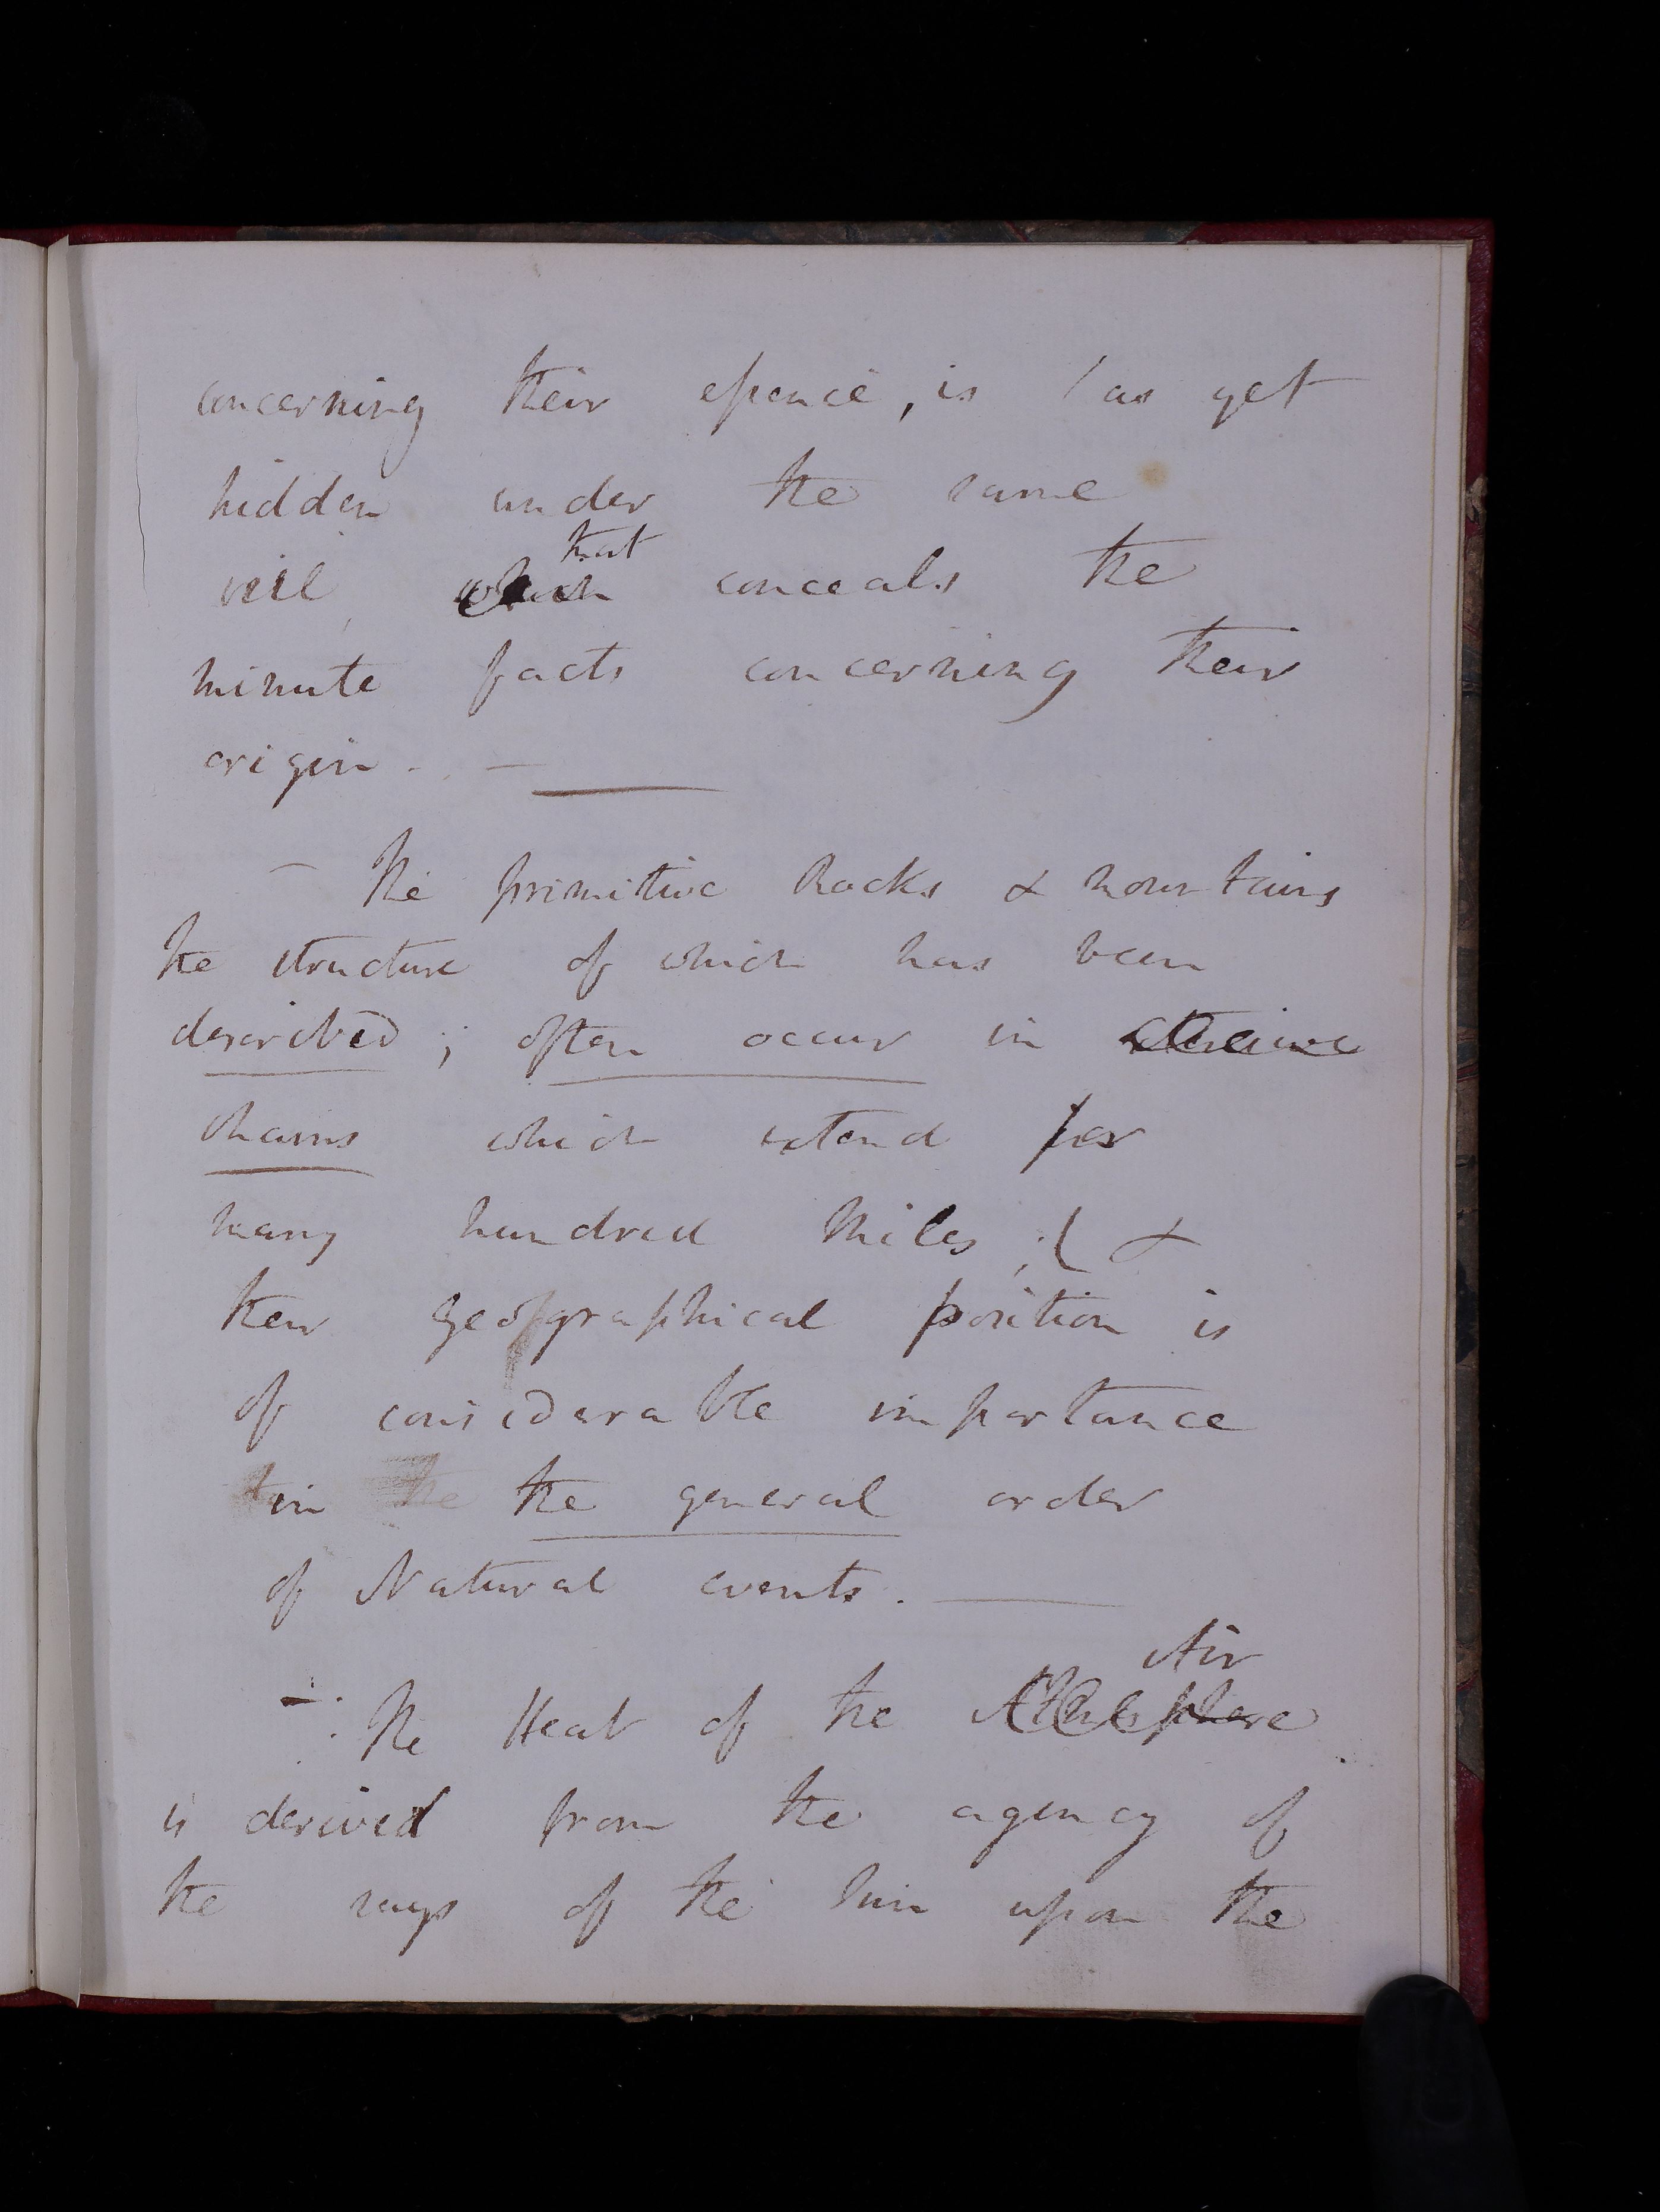 concerning their essence, is / as yet
hidden under the same
that
veil which conceals the
minute facts concerning their
origin. —
— The primitive Rocks & mountains
the structure of which has been
described; often occur in extensive
chains which extend for
many hundred Miles; ( &
their geographical position is
of considerable importance
in the the general order
of Natural events. —
Air
—: The Heat of the Atmosphere
is derived from the agency of
the rays of the Sun upon the